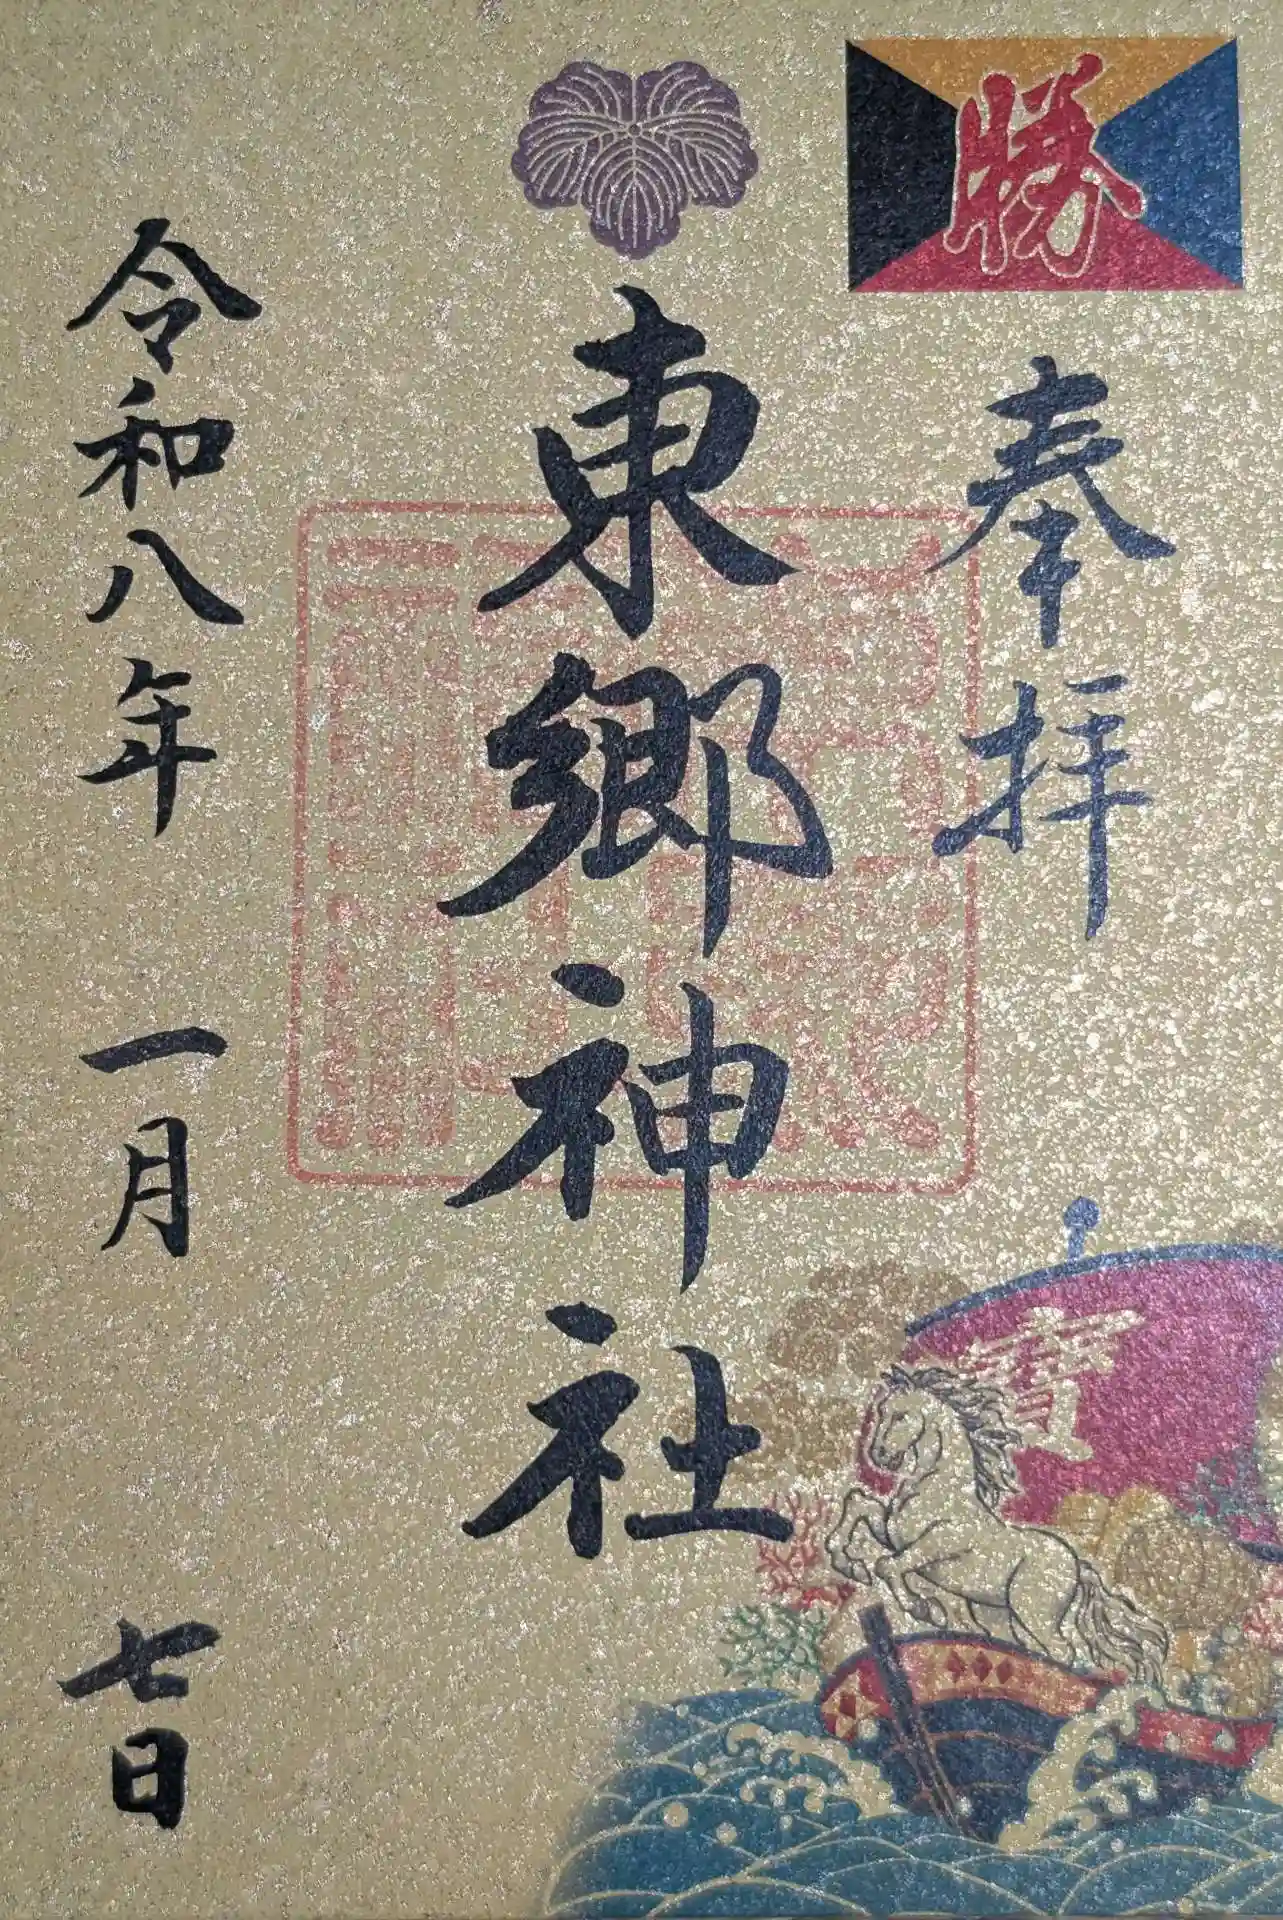 勝
奉拝
東郷神社
令和八年一月七日